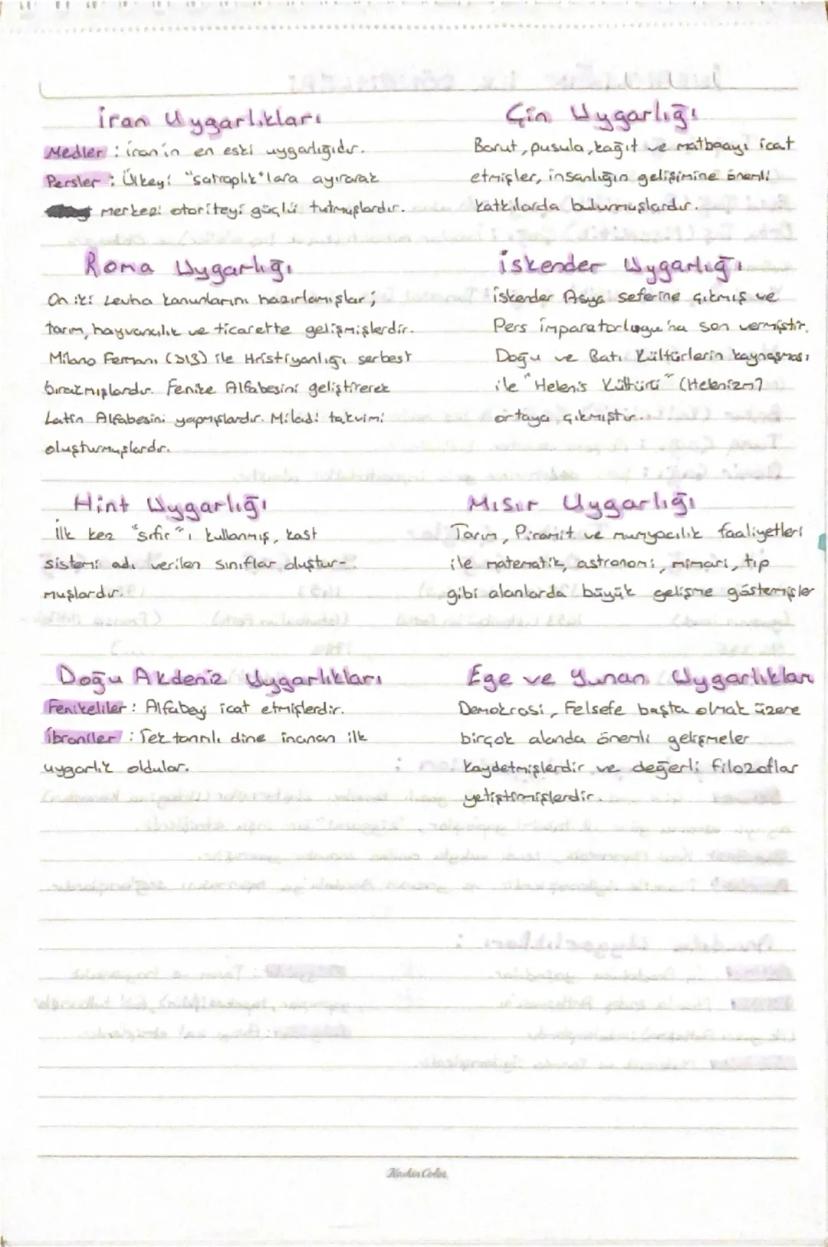 İran Uygarlıkları
Medler : İran'ın en eski uygarlığıdır.
Persler : Ülkeyi "satraplık"lara ayırarak
merkezi otoriteyi güçlü tutmuşlardır.
Çin Uygarlığı
Barut, pusula, kağıt ve matbaayı icat
etmişler, insanlığın gelişimine önemli
katkılarda bulunmuşlardır.
Roma Uygarlığı
On iki Levha kanunlarını hazırlamışlar ;
tarım, hayvancılık ve ticarette gelişmişlerdir.
Milano Fermanı (313) ile Hristiyanlığı serbest
bırakmışlardır. Fenike Alfabesini geliştirerek
Latin Alfabesini yapmışlardır. Miladi takvimi
oluşturmuşlardır.
İskender Uygarlığı
İskender Asya seferine çıkmış ve
Pers İmparatorluğu'na son vermiştir.
Doğu ve Batı Kültürlerin kaynaşması
ile "Helenis Kültürü" (Helenizm)
ortaya çıkmıştır.
Hint Uygarlığı
İlk kez "sıfır"ı kullanmış, kast
sistemi adı verilen sınıflar oluştur-
muşlardır.
Mısır Uygarlığı
Tarım, Piramit ve mumyacılık faaliyetleri
ile matematik, astronomi, mimari, tıp
gibi alanlarda büyük gelişme göstemişler
Doğu Akdeniz Uygarlıkları
Fenikeliler : Alfabeyi icat etmişlerdir.
İbraniler : Tek tanrılı dine inanan ilk
uygarlık oldular.
Ege ve Yunan Uygarlıkları
Demokrasi, Felsefe başta olmak üzere
birçok alanda önemli gelişmeler
kaydetmişlerdir ve değerli filozoflar
yetiştimişlerdir.